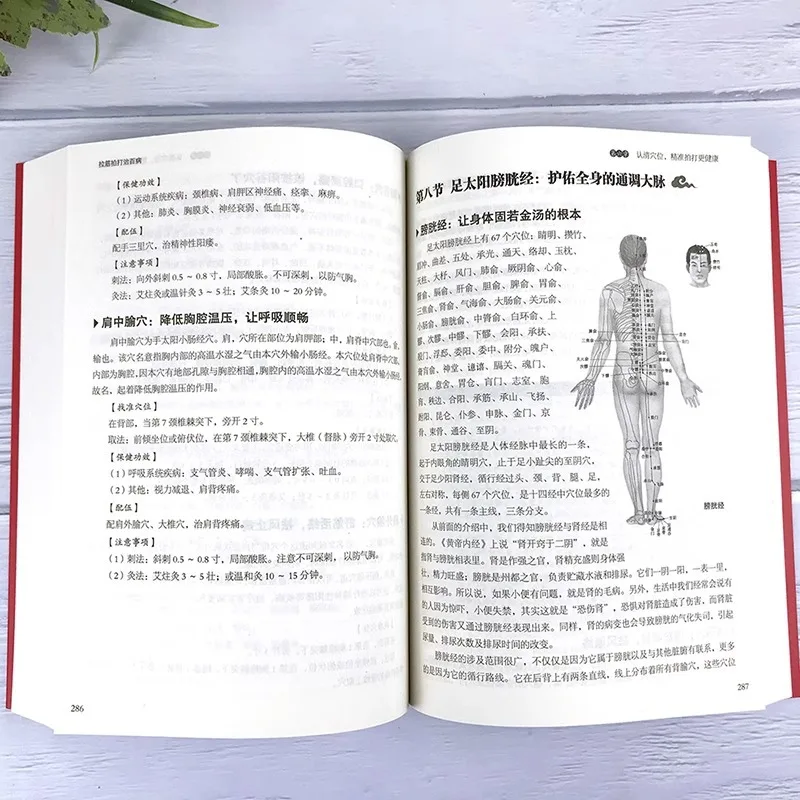 拉筋拍打治百病
【保健功效】
（1）运动系统疾病：颈椎病、肩胛区神经痛、痉挛、麻痹。
（2）其他：肺炎、胸膜炎、神经衰弱、低血压等。
【配伍】
配手三里穴，治精神性阳痿。
【注意事项】
刺法：向外斜刺 0.5 ~ 0.8 寸，局部酸胀。不可深刺，以防气胸。
灸法：艾炷灸或温针灸 3 ~ 5 壮；艾条灸 10 ~ 20 分钟。
肩中腧穴：降低胸腔温压，让呼吸顺畅
肩中腧穴为手太阳小肠经穴。肩，穴所在部位为肩胛部；中，肩脊中穴部也，俞，
输也。该穴名意指胸内部的高温水湿之气由本穴外输小肠经。本穴位处肩脊中穴部，
内部为胸腔，因本穴有地部孔隙与胸腔相通，胸腔内的高温水湿之气由本穴外输小肠经，
故名，起着降低胸腔温压的作用。
【找准穴位】
在背部，当第 7 颈椎棘突下，旁开 2 寸。
取法：前倾坐位或俯伏位，在第 7 颈椎棘突下，大椎（督脉）旁开 2 寸处取穴。
【保健功效】
（1）呼吸系统疾病：支气管炎、哮喘、支气管扩张、吐血。
（2）其他：视力减退、肩背疼痛。
【配伍】
配肩外腧穴、大椎穴，治肩背疼痛。
【注意事项】
（1）刺法：斜刺 0.5 ~ 0.8 寸，局部酸胀。注意不可深刺，以防气胸。
（2）灸法：艾炷灸 3 ~ 5 壮；或温和灸 10 ~ 15 分钟。
286
认清穴位，精准拍打更健康
第八节 足太阳膀胱经：护佑全身的通调大脉
膀胱经：让身体固若金汤的根本
足太阳膀胱经上有 67 个穴位：睛明、攒竹、
眉冲、曲差、五处、承光、通天、络却、玉枕、
天柱、大杼、风门、肺俞、厥阴俞、心俞、
督俞、膈俞、肝俞、胆俞、脾俞、胃俞、
三焦俞、肾俞、气海俞、大肠俞、关元俞、
小肠俞、膀胱俞、中膂俞、白环俞、上
髎、次髎、中髎、下髎、会阳、承扶、
殷门、浮郄、委阳、委中、附分、魄户、
膏肓俞、神堂、譩譆、膈关、魂门、
阳纲、意舍、胃仓、肓门、志室、胞
肓、秩边、合阳、承筋、承山、飞扬、
跗阳、昆仑、仆参、申脉、金门、京
骨、束骨、通谷、至阴。
足太阳膀胱经是人体经脉中最长的一条，
起于内眼角的睛明穴，止于足小趾尖的至阴穴，
交于足少阴肾经，循行经过头、颈、背、腿、足，
左右对称，每侧 67 个穴位，是十四经中穴位最多的
一条经，共有一条主线，三条分支。
膀胱经
从前面的介绍中，我们得知膀胱经与肾经是相
连的。《黄帝内经》上说“肾开窍于二阴”，就是
指肾与膀胱相表里。肾是作强之官，肾精充盛则身体强
壮，精力旺盛；膀胱是州都之官，负责贮藏水液和排尿。它们一阴一阳，一表一里，
相互影响。所以说，如果小便有问题，就是肾的毛病。另外，生活中我们经常会说有
的人因为惊吓，小便失禁，其实这就是“恐伤肾”，恐惧对肾脏造成了伤害，而肾脏
受到的伤害又通过膀胱经表现出来。同样，肾的病变也会导致膀胱的气化失司，引起
尿量、排尿次数及排尿时间的改变。
膀胱经的涉及范围很广，不仅仅是因为它属于膀胱以及与其他脏腑有联系，更多
的是因为它的循行路线。它在后背上有两条直线，线上分布着所有背腧穴，这些穴位
287